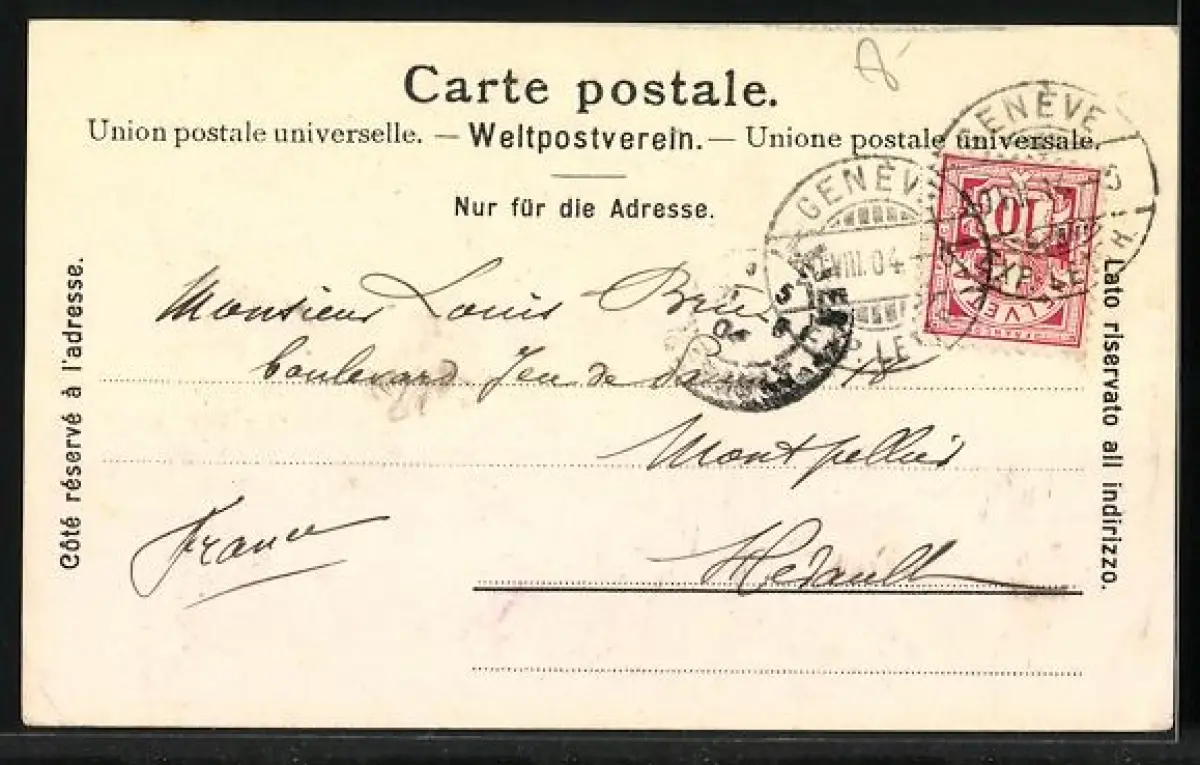 Carte postale.
Union postale universelle. — Weltpostverein. — Unione postale universale.
Nur für die Adresse.
Côté réservé à l'adresse.
Lato riservato all indirizzo.
GENÈVE
GENÈV
VIII.04
EXP. LE
10
Monsieur Louis
boulevard Jeu de
Montpellier
Hérault
France